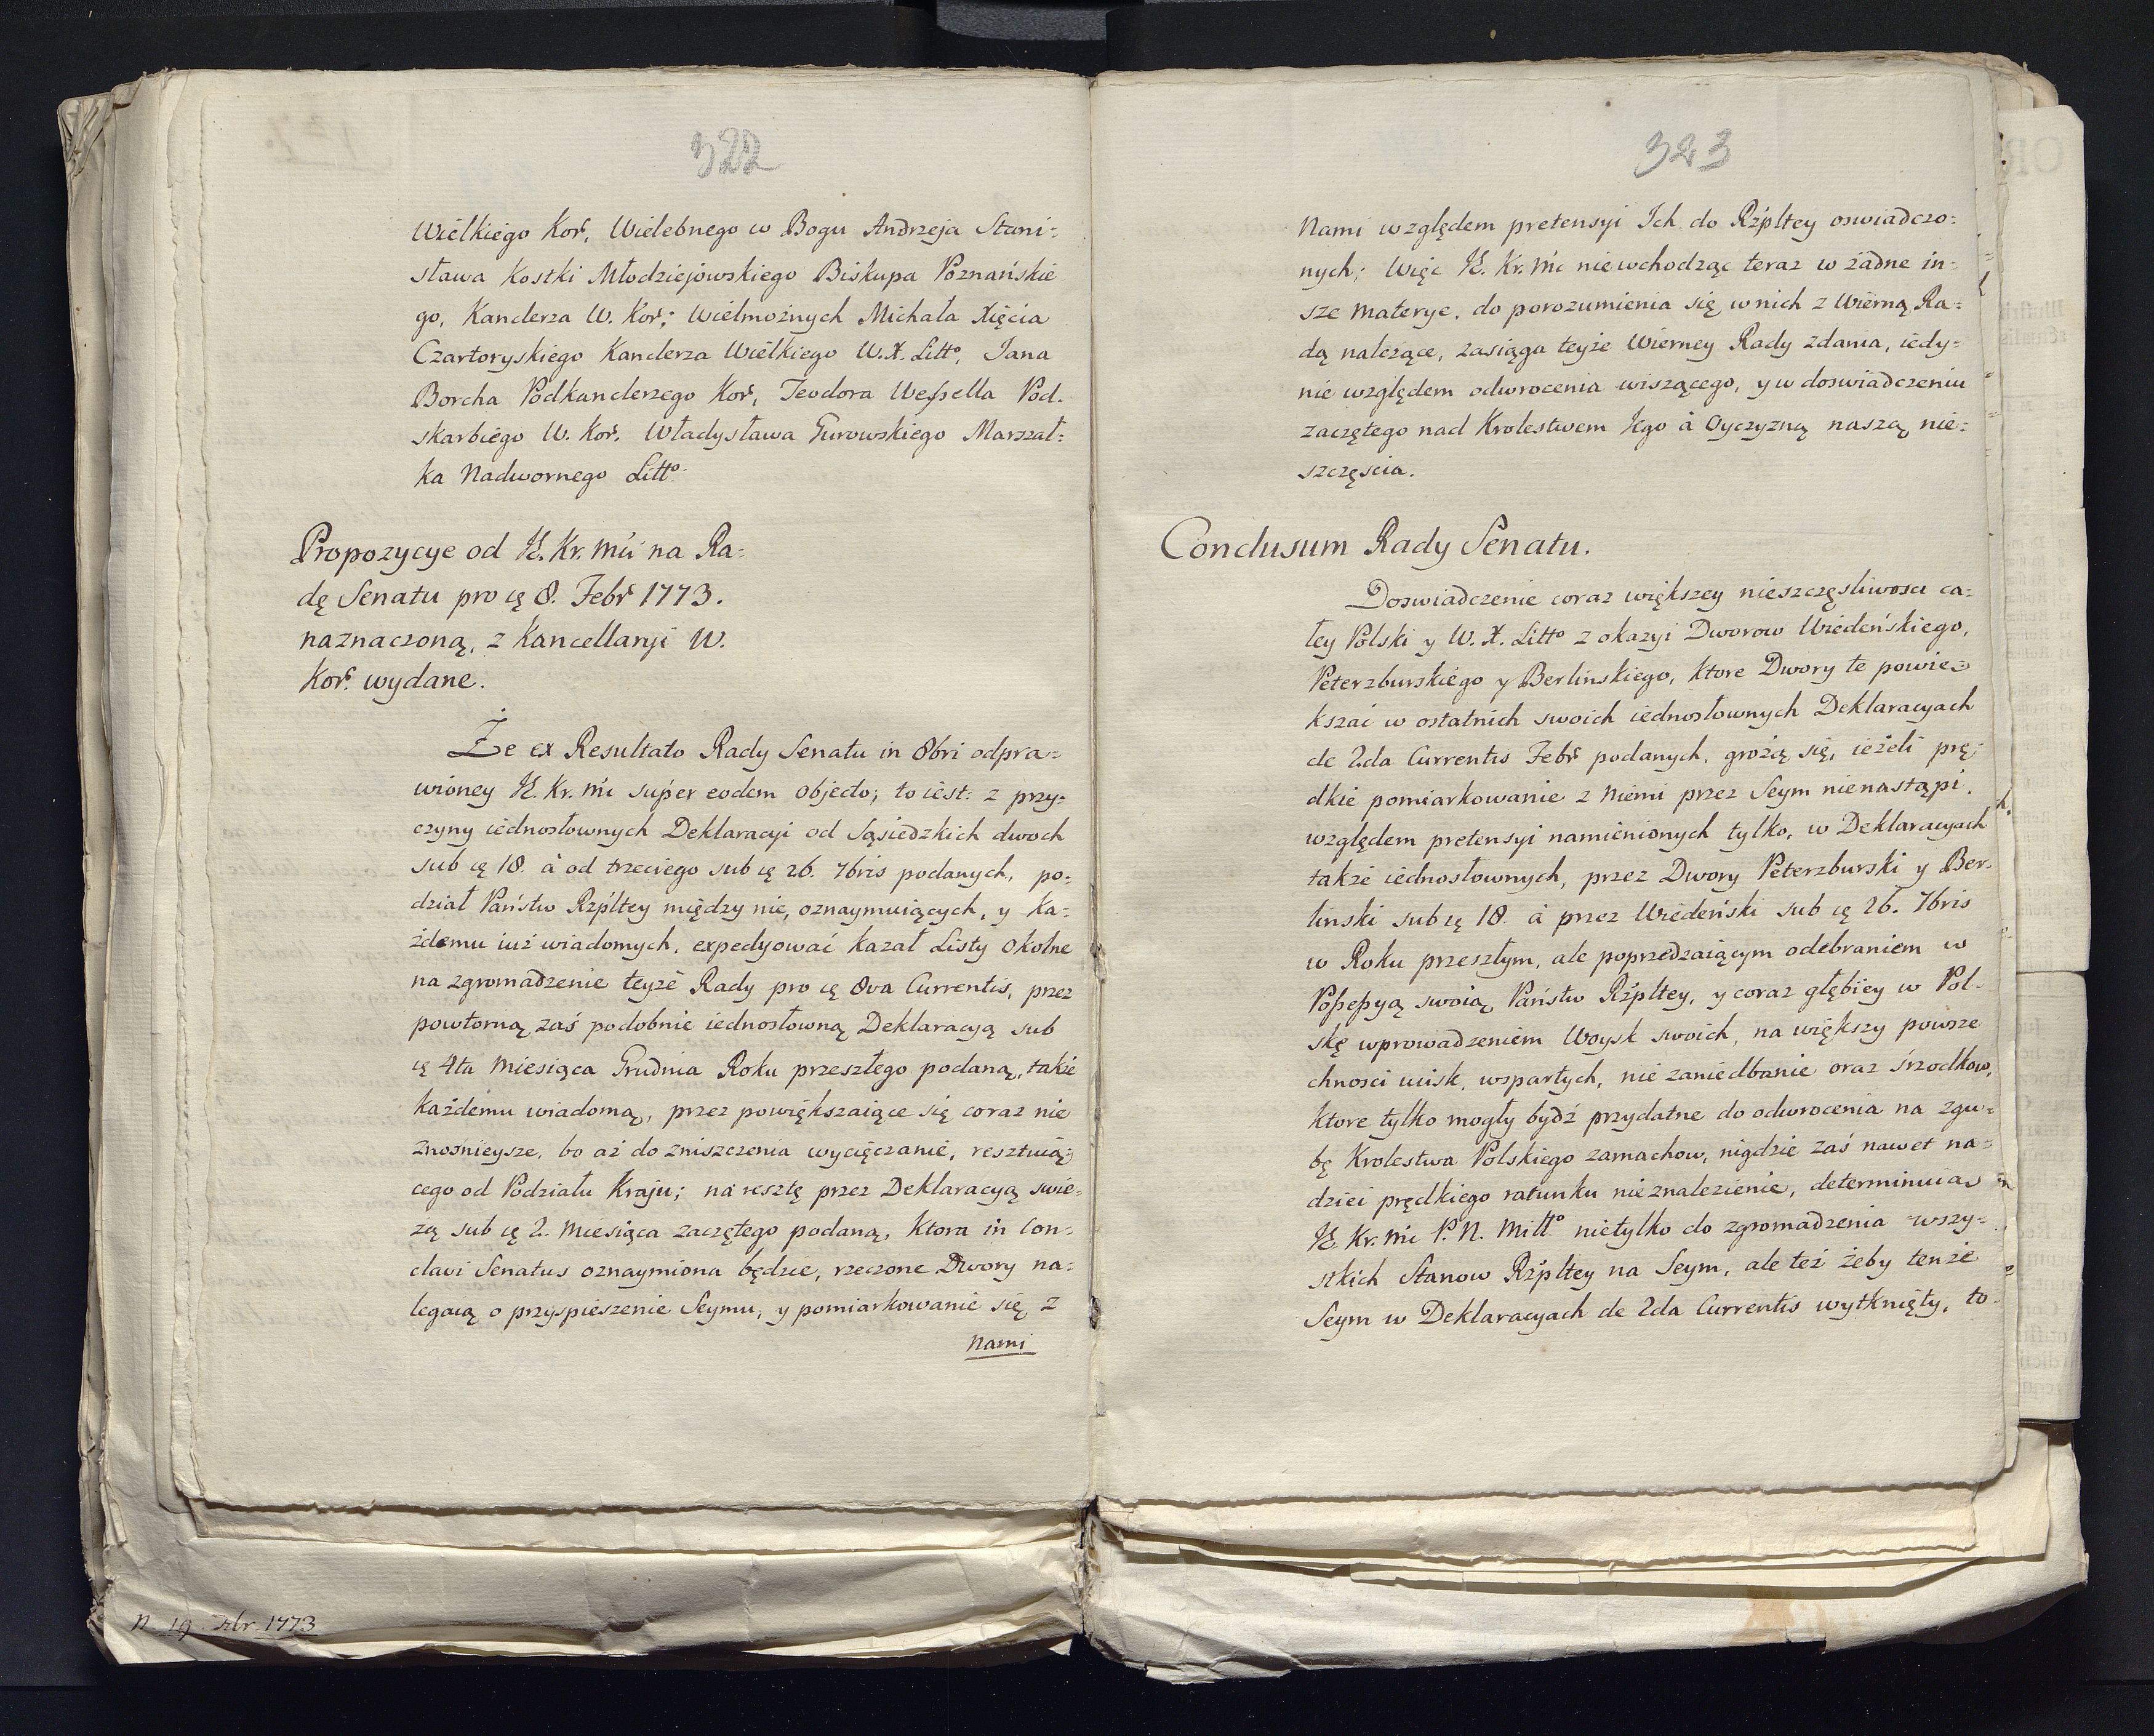 322
Wielkiego Kor, Wielebnego w Bogu Andrzeja Stani=
sława Kostki Młodziejowskiego Biskupa Poznańskie
go, Kanclerza W. Kor; Wielmożnych Michała Xięcia
Czartoryskiego Kanclerza Wielkiego W.X. Litto, Jana
Borcha Podkanclerzego Kor, Teodora Wessella Pod-
skarbiego W. Kor. Władysława Gurowskiego Marszał=
ka Nadwornego Litto.
Propozycye od J.K. Mci na Ra=
dę Senatu pro 8. Febr 1773.
naznaczoną, z Kancellaryi W.
Kor. wydane.
Że ex Resultato Rady Senatu in 8bri odpra=
wioney Kr. Mć super eodem objecto; to iest: z przy=
czyny iednosłownych Deklaracyi od Sąsiedzkich dwoch
sub 18. à od trzeciego sub 26. 7bris podanych, po=
dział Państw Rzpltey między nie, oznaymuiących, y ka=
żdemu iuż wiadomych, expedyować kazał Listy okolne
na zgromadzenie teyże Rady pro 8va Currentis, przez
powtorną zaś podobnie iednosłowną Deklaracyą sub
4ta Miesiąca Grudnia Roku przeszłego podaną, także
każdemu wiadomą, przez powiększaiące się coraz nie
znośnieysze, bo aż do zniszczenia wycięczanie, resztuią=
cego od Podziału Kraju; na resztę przez Deklaracyą świe=
żą sub 2. Miesiąca zaczętego podaną, ktora in Con=
clavi Senatus oznaymiona będzie, rzeczone Dwory na=
legaią o przyspieszenie Seymu, y pomiarkowanie się z
Nami
N 19 Febr. 1773
323
Nami względem pretensyi Ich do Rzpltey oswiadczo=
nych; Więc Kr. Mć niewchodząc teraz w żadne in=
sze Materye, do porozumienia się w nich z Wierną Ra=
dą należące, zasiąga teyże Wierney Rady zdania, iedy=
nie względem odwrocenia wiszącego, y w doswiadczeniu
zaczętego nad Krolestwem Jego à Oyczyzną naszą nie=
szczęscia.
Conclusum Rady Senatu.
Doswiadczenie coraz większey nieszczęsliwosci ca=
łey Polski y W. X. Litto z okazyi Dworow Wiedeńskiego,
Peterzburskiego y Berlinskiego, ktore Dwory te powie=
kszać w ostatnich swoich iednosłownych Deklaracyach
de 2da Currentis Febr podanych, grożą się, ieżeli prę=
dkie pomiarkowanie z Niemi przez Seym nienastąpi,
względem pretensyi namienionych tylko, w Deklaracyach
także iednosłownych, przez Dwory Peterzburski y Ber=
linski sub 18. à przez Wiedeński sub 26. 7bris
w Roku przeszłym, ale poprzedzaiącym odebraniem w
Possessyą swoią Państw Rzpltey, y coraz głębiey w Pol=
skę wprowadzeniem Woysk swoich, na większy powsze
chnosci ucisk, wspartych, nie zaniedbanie oraz śrzodkow,
ktore tylko mogły bydź przydatne do odwrocenia na zgu=
bę Krolestwa Polskiego zamachow, nigdzie zaś nawet na=
dziei prędkiego ratunku nieznalezienie, determinuia
Kr. Mć P. N. Miłł nietylko do zgromadzenia wszy=
stkich Stanow Rzpltey na Seym, ale też żeby tenże
Seym w Deklaracyach de 2da Currentis wytknięty, to=